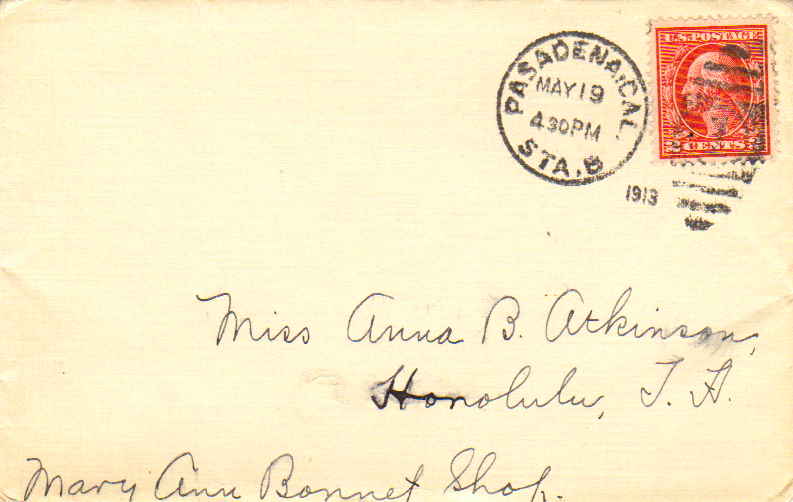 PASADENA, CAL.
MAY 19
4 30 PM
STA. B
1913
U.S. POSTAGE
2 CENTS 2
Miss Anna B. Atkinson,
Honolulu, T. H.
Mary Ann Bonnet Shop.